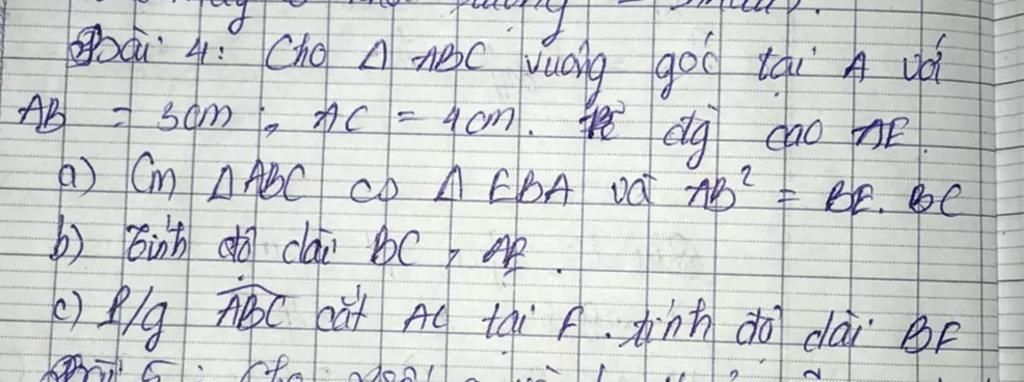 Bài 4: Cho Δ ABC vuông góc tại A với
AB = 3cm; AC = 4cm. Kẻ đg cao AE.
a) Cm Δ ABC ∽ Δ EBA và AB² = BE. BC
b) Tính độ dài BC, AE.
c) P/g ABC cắt AC tại F. tính độ dài BF
Bài 5: Cho